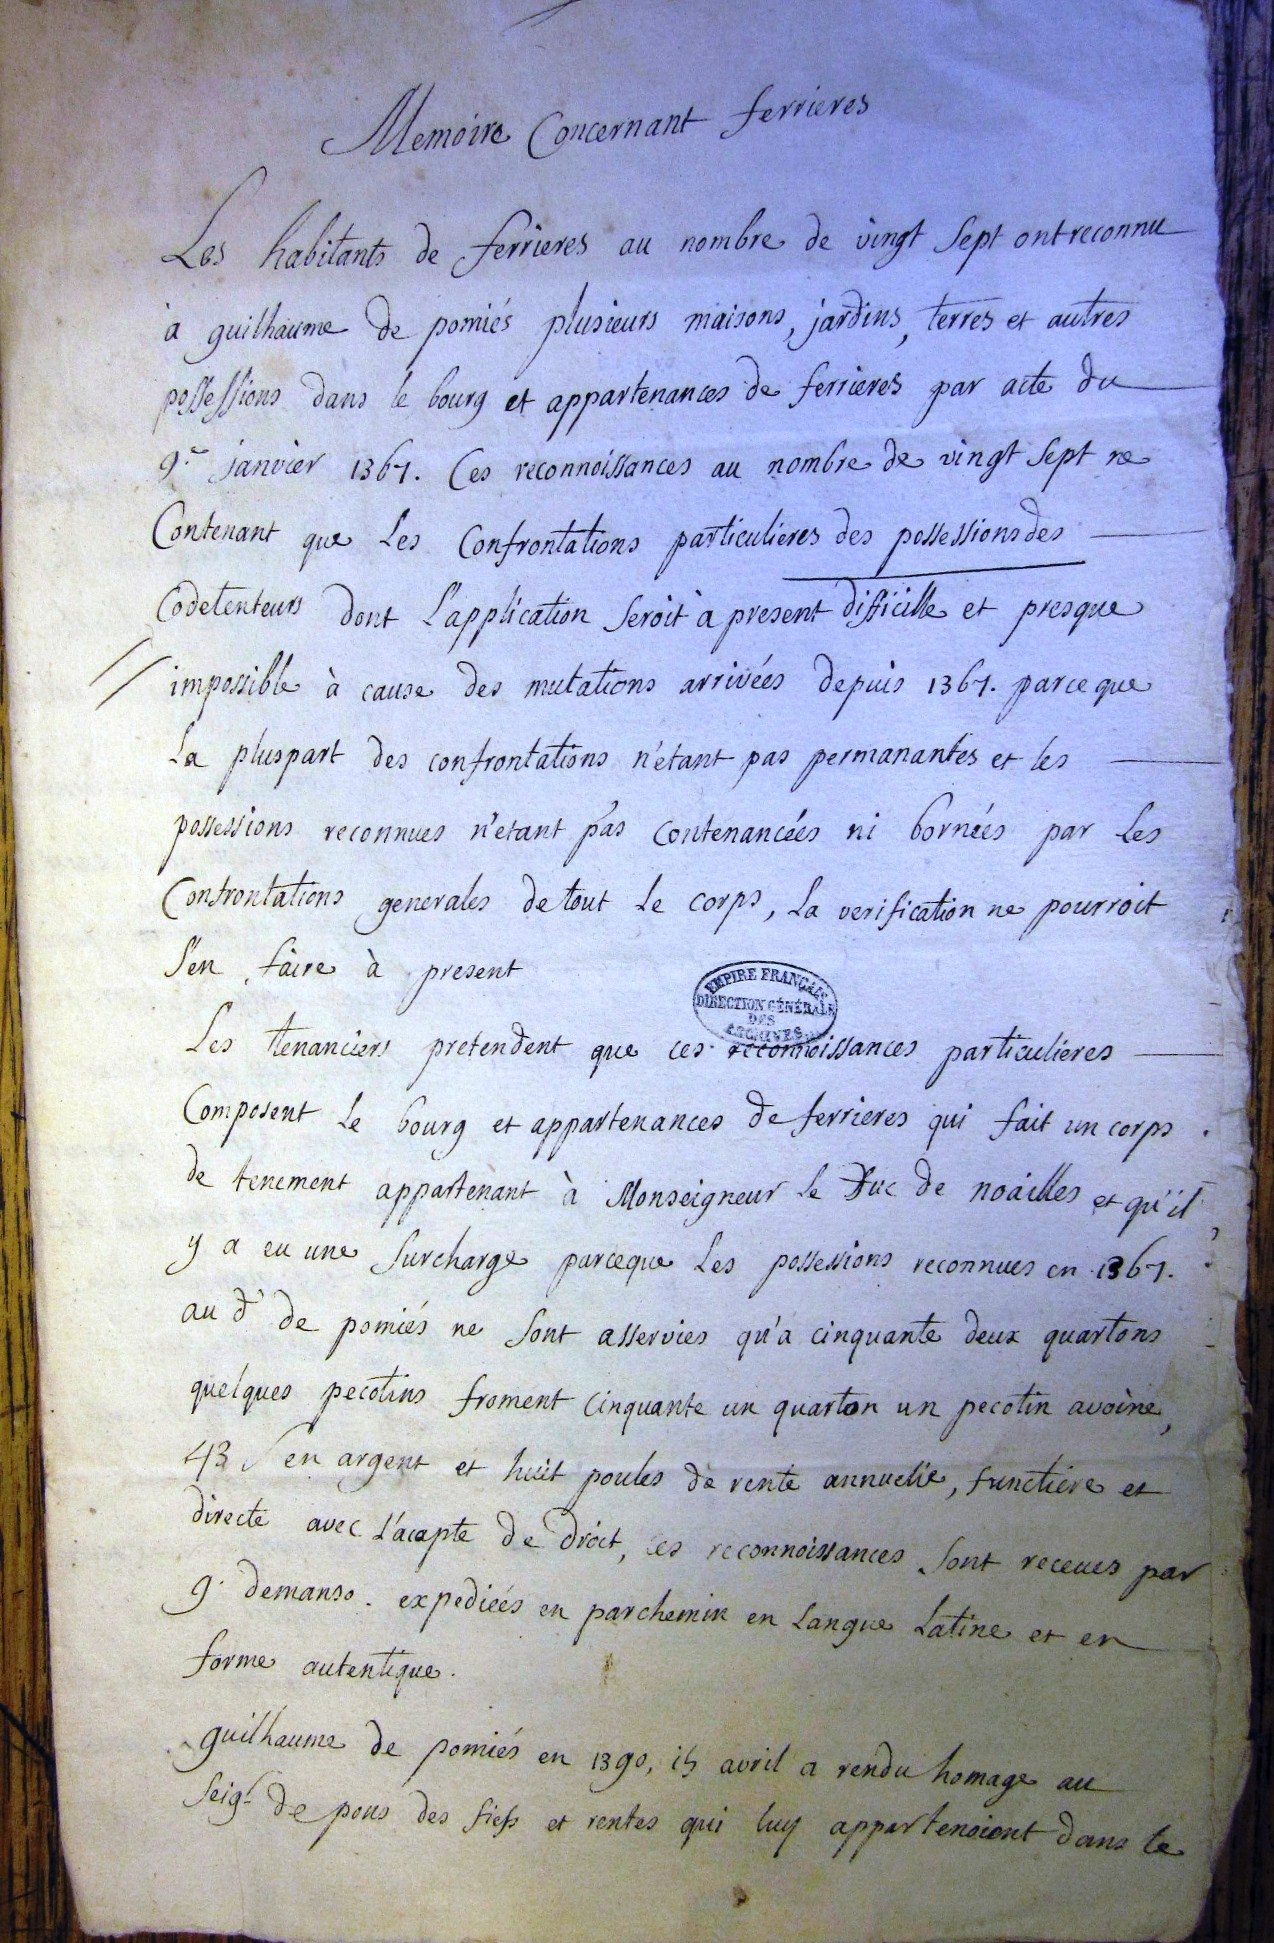 Memoire Concernant ferrieres
Les habitants de ferrieres au nombre de vingt Sept ont reconnu
à guilhaume de pomiés plusieurs maisons, jardins, terres et autres
possessions dans le bourg et appartenances de ferrieres par acte du
9.e janvier 1367. Ces reconnoissances au nombre de vingt Sept ne
Contenant que Les Confrontations particulieres des possessions des
Codetenteurs dont L'application Seroit à present difficille et presque
impossible à cause des mutations arrivées depuis 1367. parce que
La pluspart des confrontations n'étant pas permanantes et les
possessions reconnues n'etant pas Contenancées ni bornées par Les
Confrontations generales de tout Le corps, La verification ne pourroit
S'en faire à present
EMPIRE FRANÇAIS
DIRECTION GÉNÉRALE
DES
ARCHIVES
Les tenanciers pretendent que ces reconnoissances particulieres
Composent Le bourg et appartenances de ferrieres qui fait un corps
de tenement appartenant à Monseigneur Le Duc de noailles et qu'il
y a eu une Surcharge parceque Les possessions reconnues en 1367.
au d.t de pomiés ne Sont asservies qu'a cinquante deux quartons
quelques pecotins froment Cinquante un quarton un pecotin avoine,
43 s en argent et huit poules de rente annuelle, functiere et
directe avec L'acapte de droit, ces reconnoissances Sont receues par
g. demanso. expediées en parchemin en Langue Latine et en
forme autentique.
guilhaume de pomiés en 1390, 15 avril a rendu homage au
Seig.r de pons des fiefs et rentes qui luy appartenoient dans le